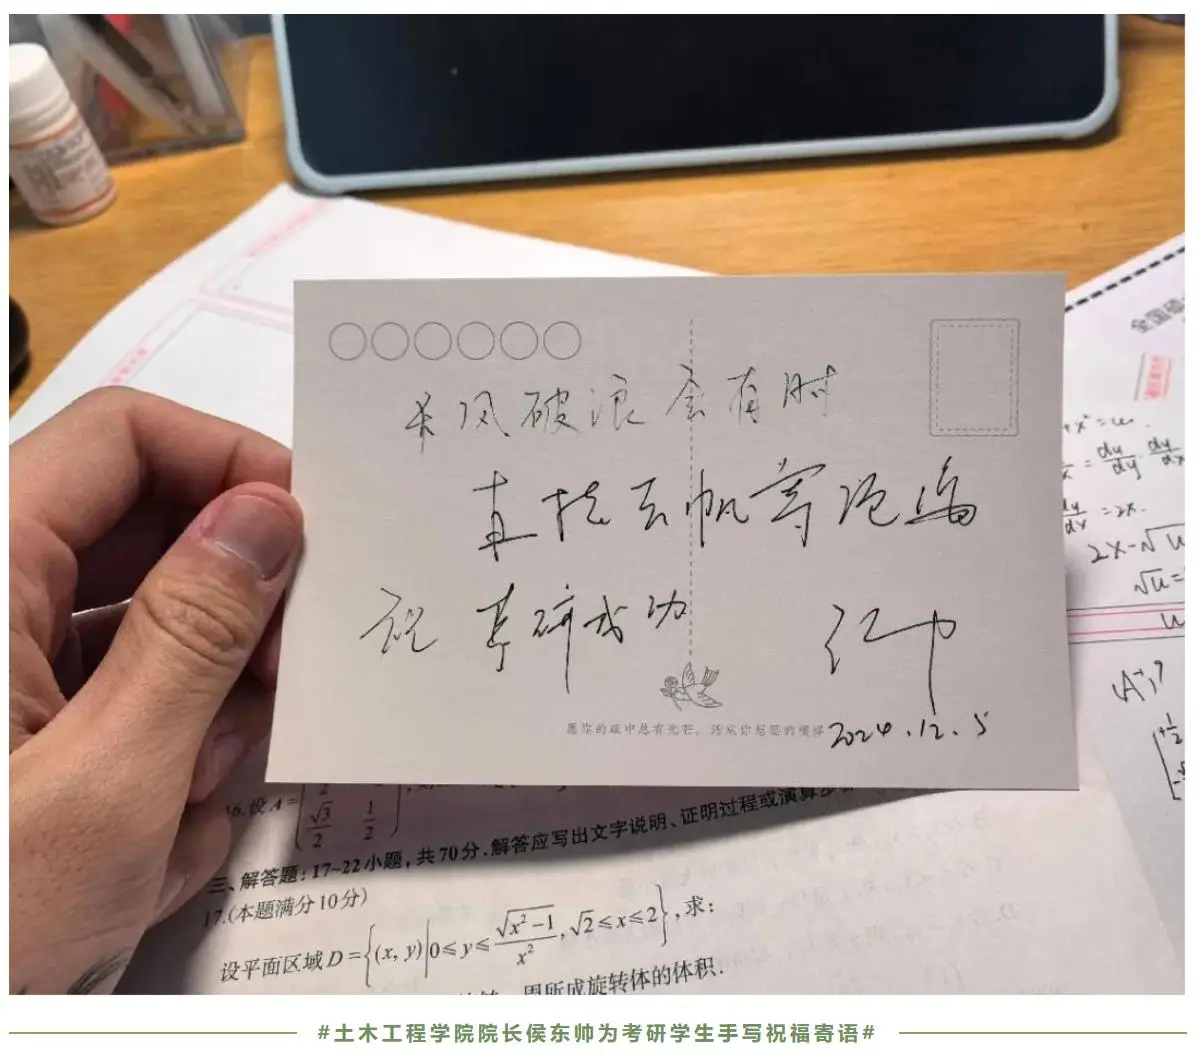 乘风破浪会有时
直挂云帆济沧海
祝 考研成功
2024.12.5
愿你的眼中总有光芒，活成你想要的模样
全国硕
+x²=u.
du/dy · dy/dx
du/dx = 2x.
2x-√u
√u=
A
16.设A=
√3/2 1/2
三、解答题：17~22小题，共70分.解答应写出文字说明、证明过程或演算步
17.(本题满分10分)
设平面区域D={(x, y)|0≤y≤√x²-1/x², √2≤x≤2}，求：
周所成旋转体的体积.
#土木工程学院院长侯东帅为考研学生手写祝福寄语#